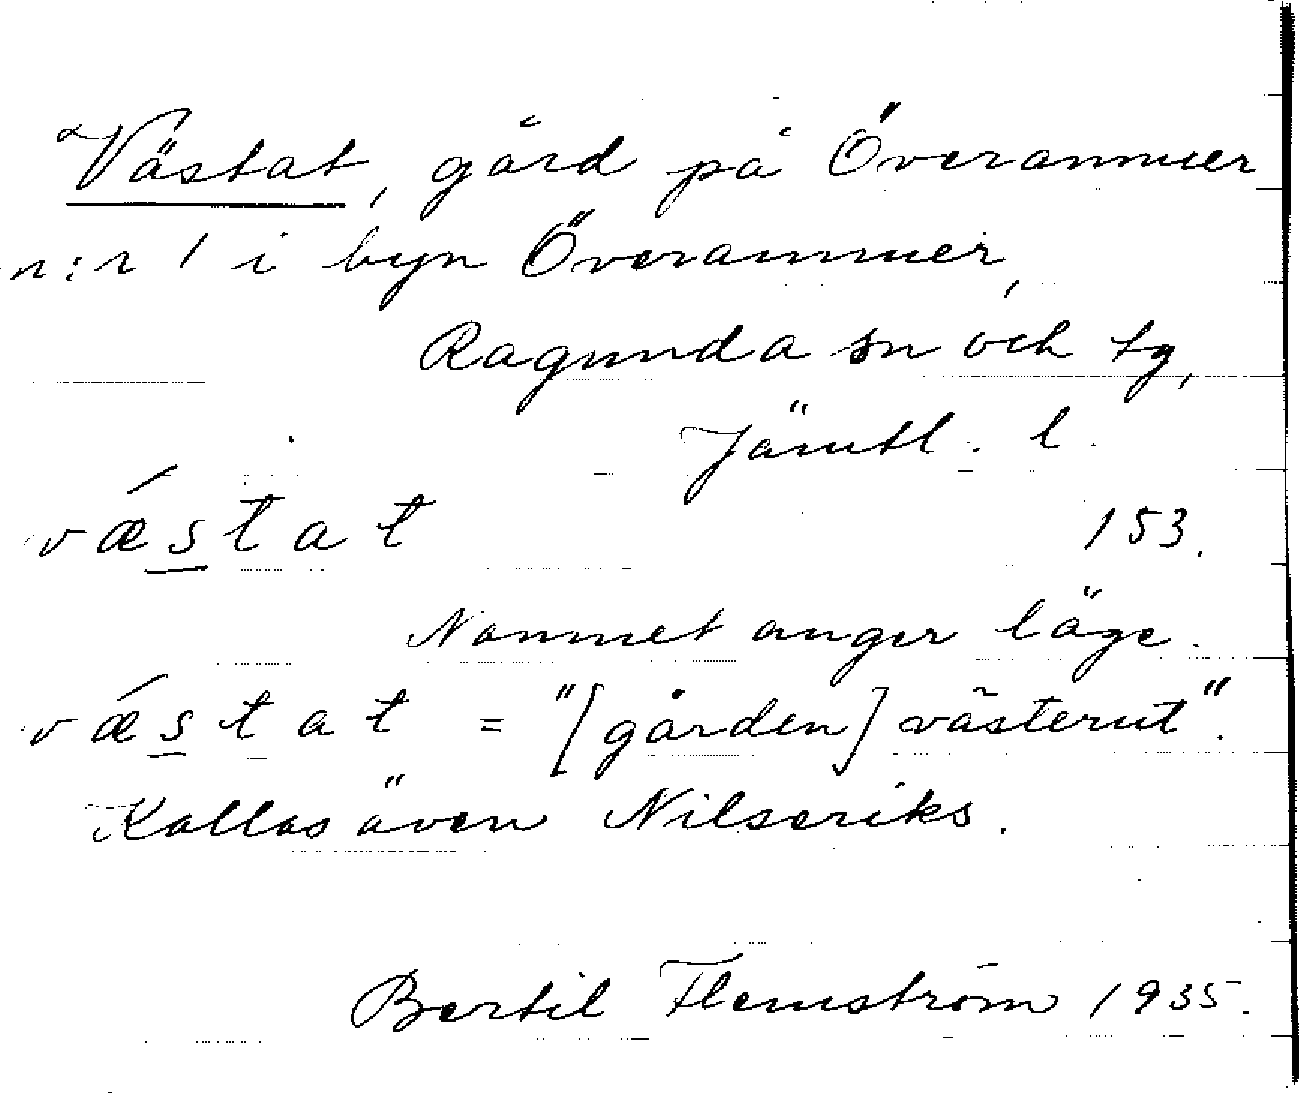 Västat, gård på Överammer
n:r 1 i byn Överammer,
Ragunda sn och tg,
Jämtl. l.
vǽstat 153.
Namnet anger läge.
vǽstat = "[gården] västerut".
Kallas även Nilseriks.
Bertil Flemström 1935.